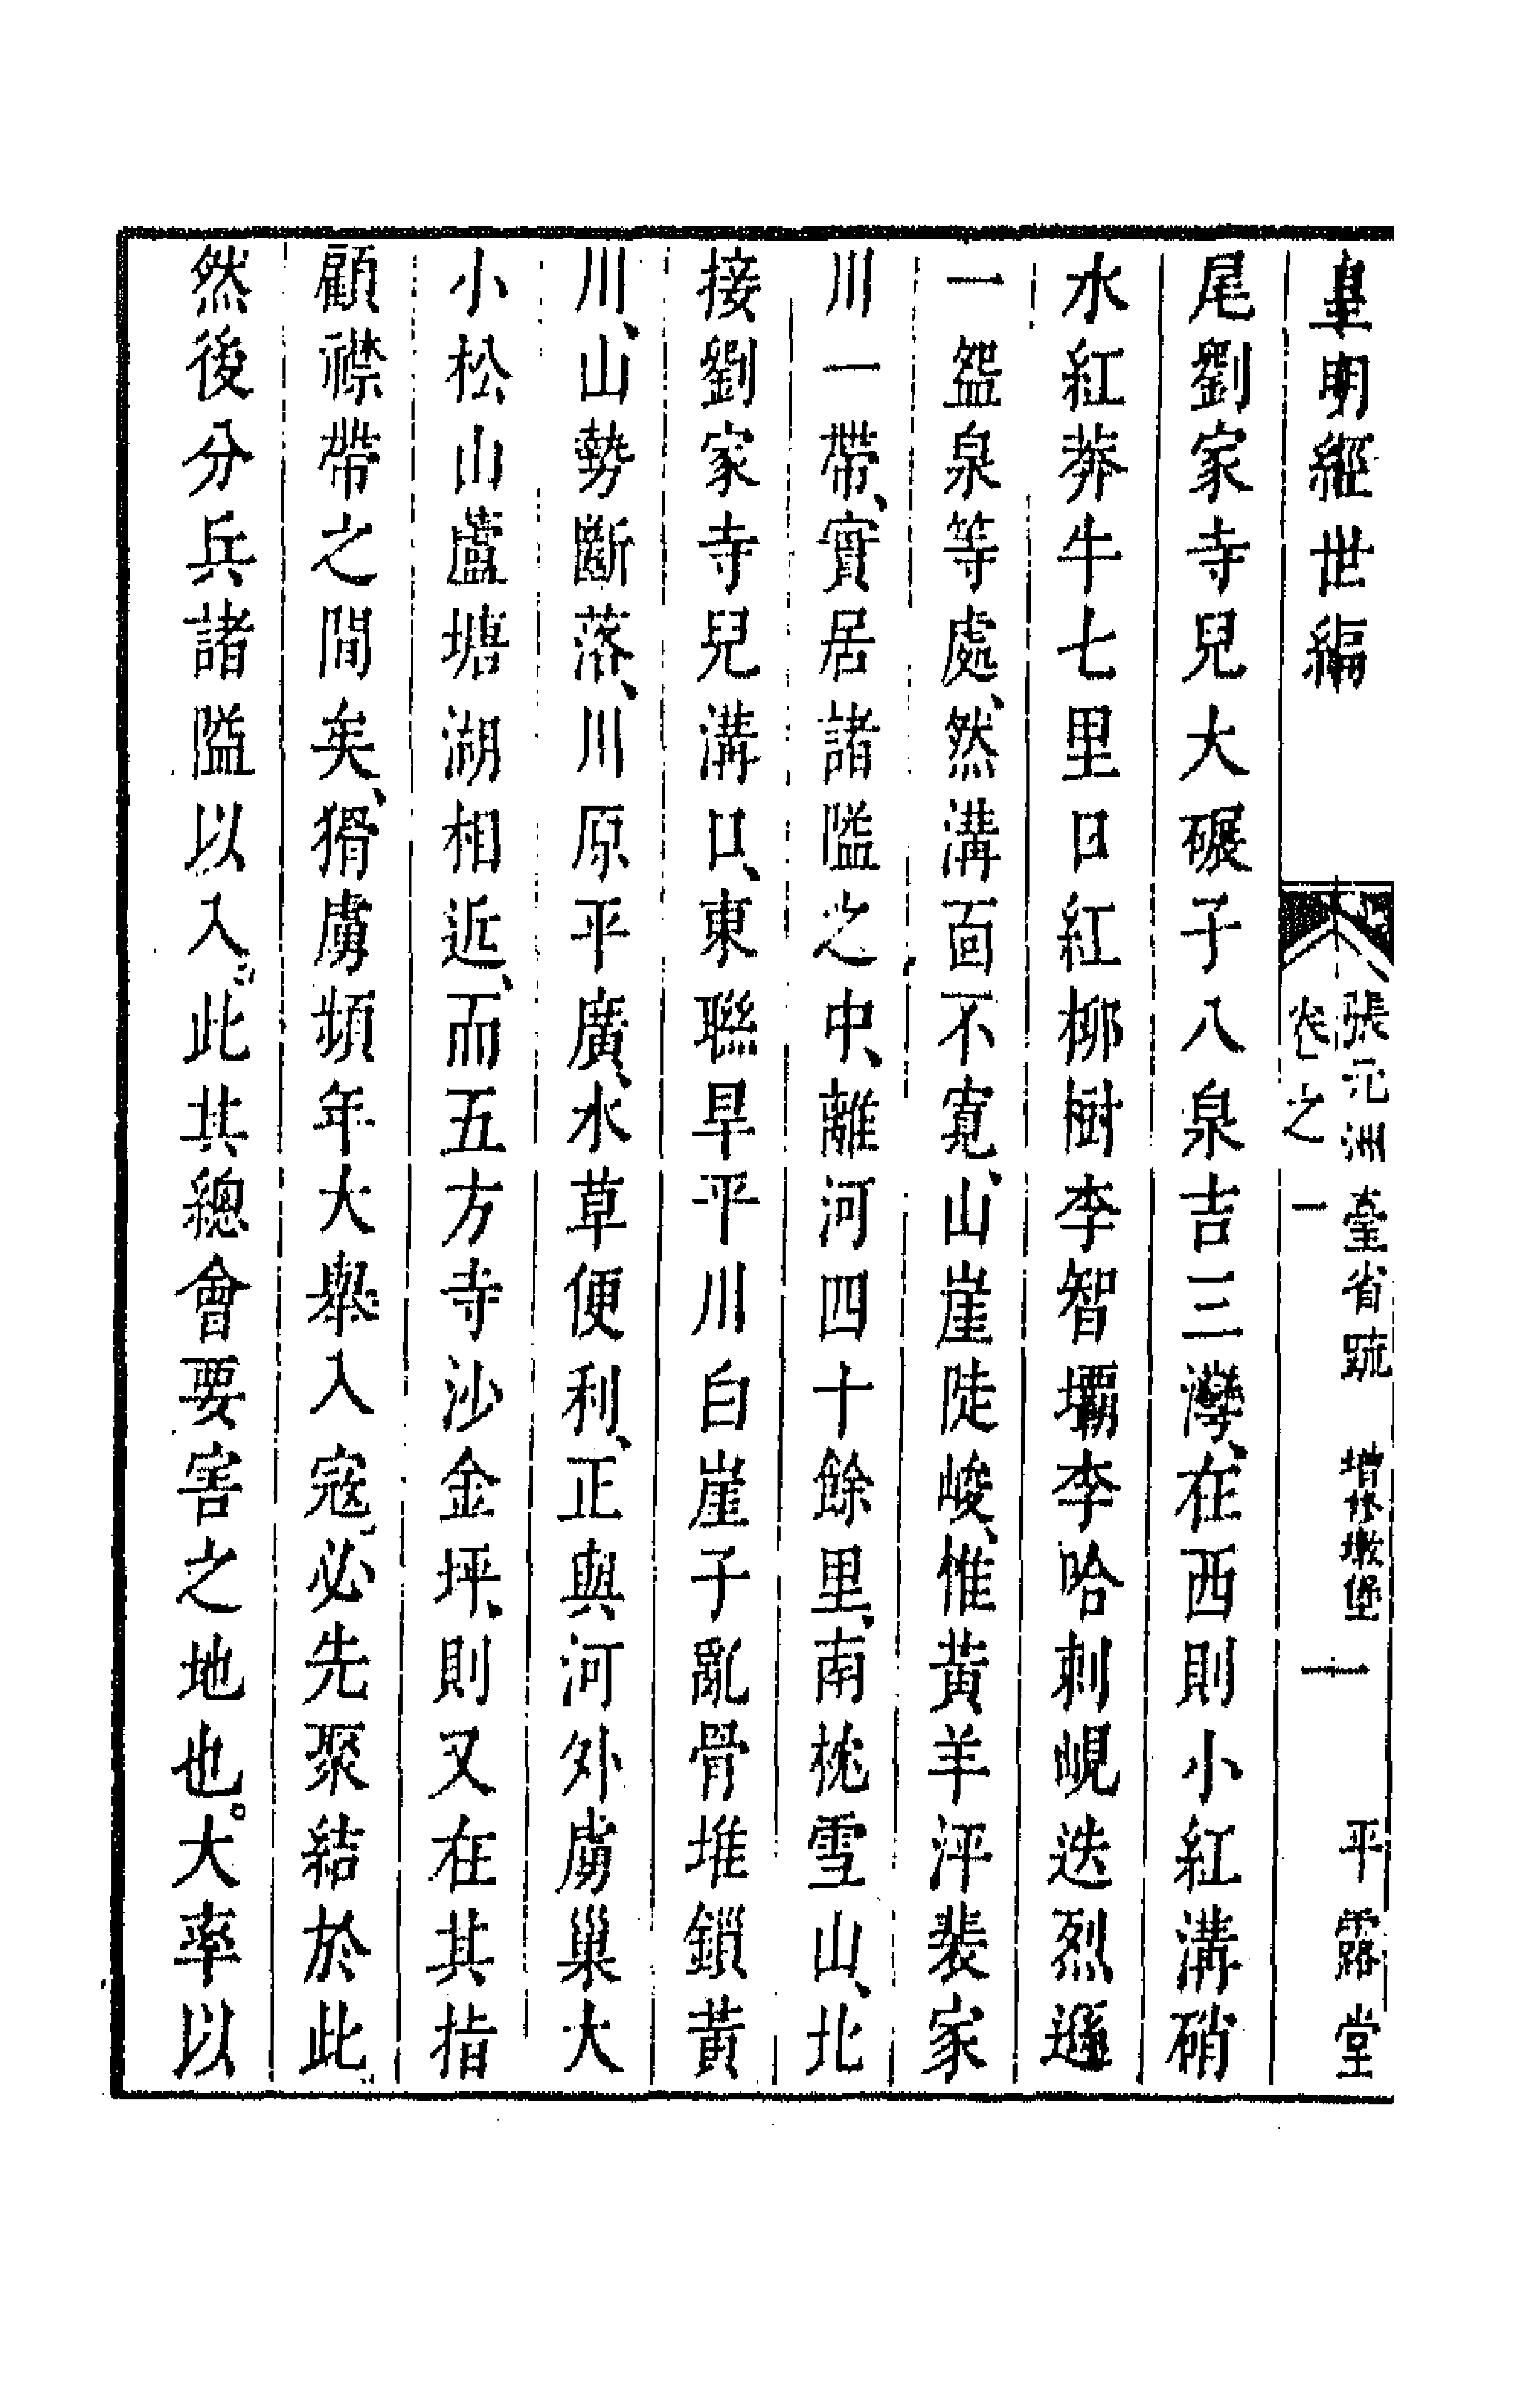 皇明經世編
張元洲臺省疏 增修墩堡 一 平露堂
卷之一
尾劉家寺兒大碾子八泉吉三灣、在西則小紅溝硝
水紅莽牛七里日紅柳樹李智壩李哈刺峴迭烈遜
一盌泉等處、然溝面不寬、山崖陡峻、惟黃羊泙裴家
川一帶、實居諸隘之中、離河四十餘里、南枕雪山、北
接劉家寺兒溝口、東聯旱平川白崖子亂骨堆鎖黃
川、山勢斷落、川原平廣、水草便利、正與河外虜巢大
小松山蘆塘湖相近、而五方寺沙金坪、則又在其指
顧襟帶之間矣、猾虜頻年大舉入寇、必先聚結於此
然後分兵諸隘以入。此其總會要害之地也。大率以